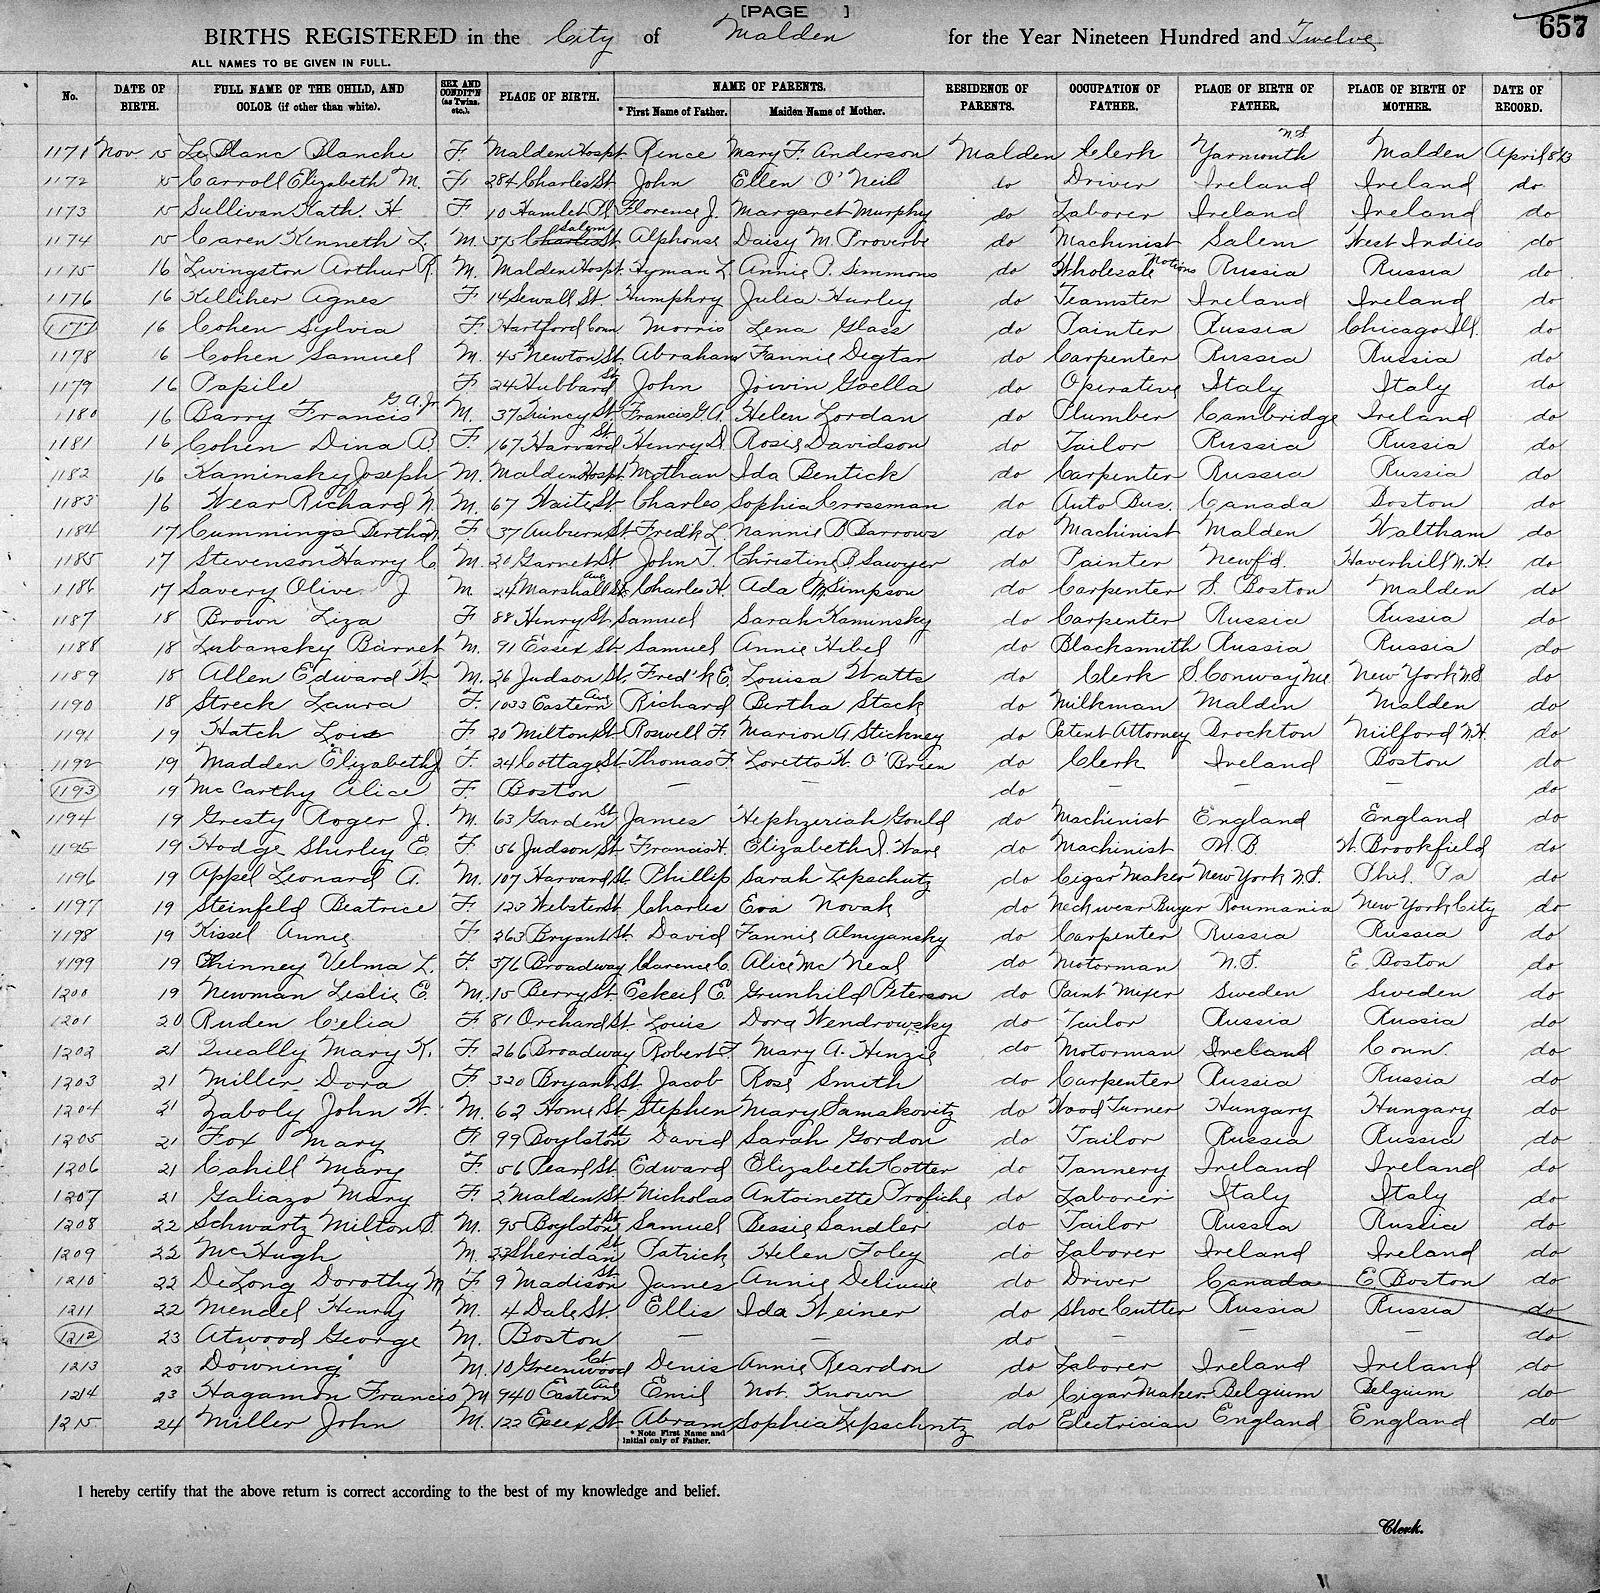 [PAGE ]
657
BIRTHS REGISTERED in the City of Malden for the Year Nineteen Hundred and Twelve
ALL NAMES TO BE GIVEN IN FULL.
No. DATE OF BIRTH. FULL NAME OF THE CHILD, AND COLOR (if other than white). SEX AND CONDIT'N (as Twins, etc.). PLACE OF BIRTH. NAME OF PARENTS. * First Name of Father. Maiden Name of Mother. RESIDENCE OF PARENTS. OCCUPATION OF FATHER. PLACE OF BIRTH OF FATHER. PLACE OF BIRTH OF MOTHER. DATE OF RECORD.
1171 Nov 15 Le Blanc Blanche F. Malden Hospt. Rence Mary F. Anderson Malden Clerk Yarmouth N.S. Malden April 8 13
1172 15 Carroll Elizabeth M. F. 284 Charles St. John Ellen O'Neil do Driver Ireland Ireland do
1173 15 Sullivan Kath. H F. 10 Hamlet Pl. Florence J. Margaret Murphy do Laborer Ireland Ireland do
1174 15 Caren Kenneth L. M. 375 Salem St. Alphonse Daisy M. Proverbe do Machinist Salem West Indies do
1175 16 Livingston Arthur R. M. Malden Hospt. Hyman L. Annie P. Simmons do Wholesale Notions Russia Russia do
1176 16 Killiher Agnes F. 14 Sewall St. Humphry Julia Hurley do Teamster Ireland Ireland do
1177 16 Cohen Sylvia F. Hartford Conn Morris Lena Glass do Painter Russia Chicago Ill. do
1178 16 Cohen Samuel M. 45 Newton St. Abraham Fannie Degtar do Carpenter Russia Russia do
1179 16 Papile F. 24 Hubbard St. John Joivin Goella do Operative Italy Italy do
1180 16 Barry Francis G. A. Jr. M. 37 Quincy St. Francis G. A. Helen Lordan do Plumber Cambridge Ireland do
1181 16 Cohen Dina B. F. 167 Harvard St. Henry D. Rose Davidson do Tailor Russia Russia do
1182 16 Kaminsky Joseph M. Malden Hospt. Mothan Ida Bentick do Carpenter Russia Russia do
1183 16 Wear Richard N. M. 67 Waite St. Charles Sophia Crossman do Auto Bus. Canada Boston do
1184 17 Cummings Bertha N. F. 37 Auburn St. Fredk L. Nannie B Barrows do Machinist Malden Waltham do
1185 17 Stevenson Harry C M. 20 Garnet St. John T. Christine P. Sawyer do Painter Newf'd. Haverhill N.H. do
1186 17 Savery Oliver J M. 24 Marshall St. Ave Charles H. Ada M. Simpson do Carpenter S. Boston Malden do
1187 18 Brown Liza F. 88 Henry St. Samuel Sarah Kaminsky do Carpenter Russia Russia do
1188 18 Lubansky Barnet M. 91 Essex St. Samuel Annie Hibel do Blacksmith Russia Russia do
1189 18 Allen Edward W. M. 26 Judson St. Fred'k E. Louisa Watts do Clerk S. Conway Me New York N.Y. do
1190 18 Streck Laura F. 1033 Eastern Ave Richard Bertha Stack do Milkman Malden Malden do
1191 19 Hatch Lois F. 20 Milton St. Roswell F. Marion G Stickney do Patent Attorney Brockton Milford N.H. do
1192 19 Madden Elizabeth J F. 24 Cottage St. Thomas F. Loretta H. O'Brien do Clerk Ireland Boston do
1193 19 McCarthy Alice F. Boston — — do — — — do
1194 19 Gresty Roger J. M. 63 Garden St. James Hephzeriah Gould do Machinist England England do
1195 19 Hodge Shirley E F. 56 Judson St. Francis H. Elizabeth I. Ware do Machinist N. B. W. Brookfield do
1196 19 Appel Leonard A. M. 107 Harvard St. Phillip Sarah Lipschutz do Cigar Maker New York N.Y. Phil. Pa do
1197 19 Steinfeld Beatrice F. 123 Webster St. Charles Eva Novak do Neckwear Buyer Roumania New York City do
1198 19 Kissel Annie F. 263 Bryant St. David Fannie Almyansky do Carpenter Russia Russia do
1199 19 Phinney Velma L. F. 376 Broadway Clarence C. Alice McNeal do Motorman N.S. E. Boston do
1200 19 Newman Leslie E. M. 15 Berry St. Eskeil E. Grunhild Peterson do Paint Mixer Sweden Sweden do
1201 20 Ruden Celia F. 81 Orchard St. Louis Dora Wendrowsky do Tailor Russia Russia do
1202 21 Queally Mary K. F. 266 Broadway Robert T. Mary A. Hinzie do Motorman Ireland Conn. do
1203 21 Miller Dora F. 320 Bryant St. Jacob Rose Smith do Carpenter Russia Russia do
1204 21 Zaboly John W. M. 62 Home St. Stephen Mary Samakovitz do Wood Turner Hungary Hungary do
1205 21 Fox Mary F. 99 Boylston St. David Sarah Gordon do Tailor Russia Russia do
1206 21 Cahill Mary F. 56 Pearl St. Edward Elizabeth Cotter do Tannery Ireland Ireland do
1207 21 Galiazo Mary F. 2 Malden St. Nicholas Antoinette Profiche do Laborer Italy Italy do
1208 22 Schwartz Milton S. M. 95 Boylston St. Samuel Bessie Sandler do Tailor Russia Russia do
1209 22 McHugh M. 22 Sheridan St. Patrick Helen Foley do Laborer Ireland Ireland do
1210 22 DeLong Dorothy M F. 9 Madison St. James Annie Delivie do Driver Canada E Boston do
1211 22 Mendel Henry M. 4 Dale St. Ellis Ida Weiner do Shoe Cutter Russia Russia do
1212 23 Atwood George M. Boston — — do — — — do
1213 23 Downing M. 10 Greenwood Ct. Denis Annie Reardon do Laborer Ireland Ireland do
1214 23 Hagamon Francis M 940 Eastern Ave Emil Not. Known do Cigar Maker Belgium Belgium do
1215 24 Miller John M. 122 Essex St. Abram Sophia Lipschntz do Electrician England England do
* Note First Name and Initial only of Father.
I hereby certify that the above return is correct according to the best of my knowledge and belief.
Clerk.